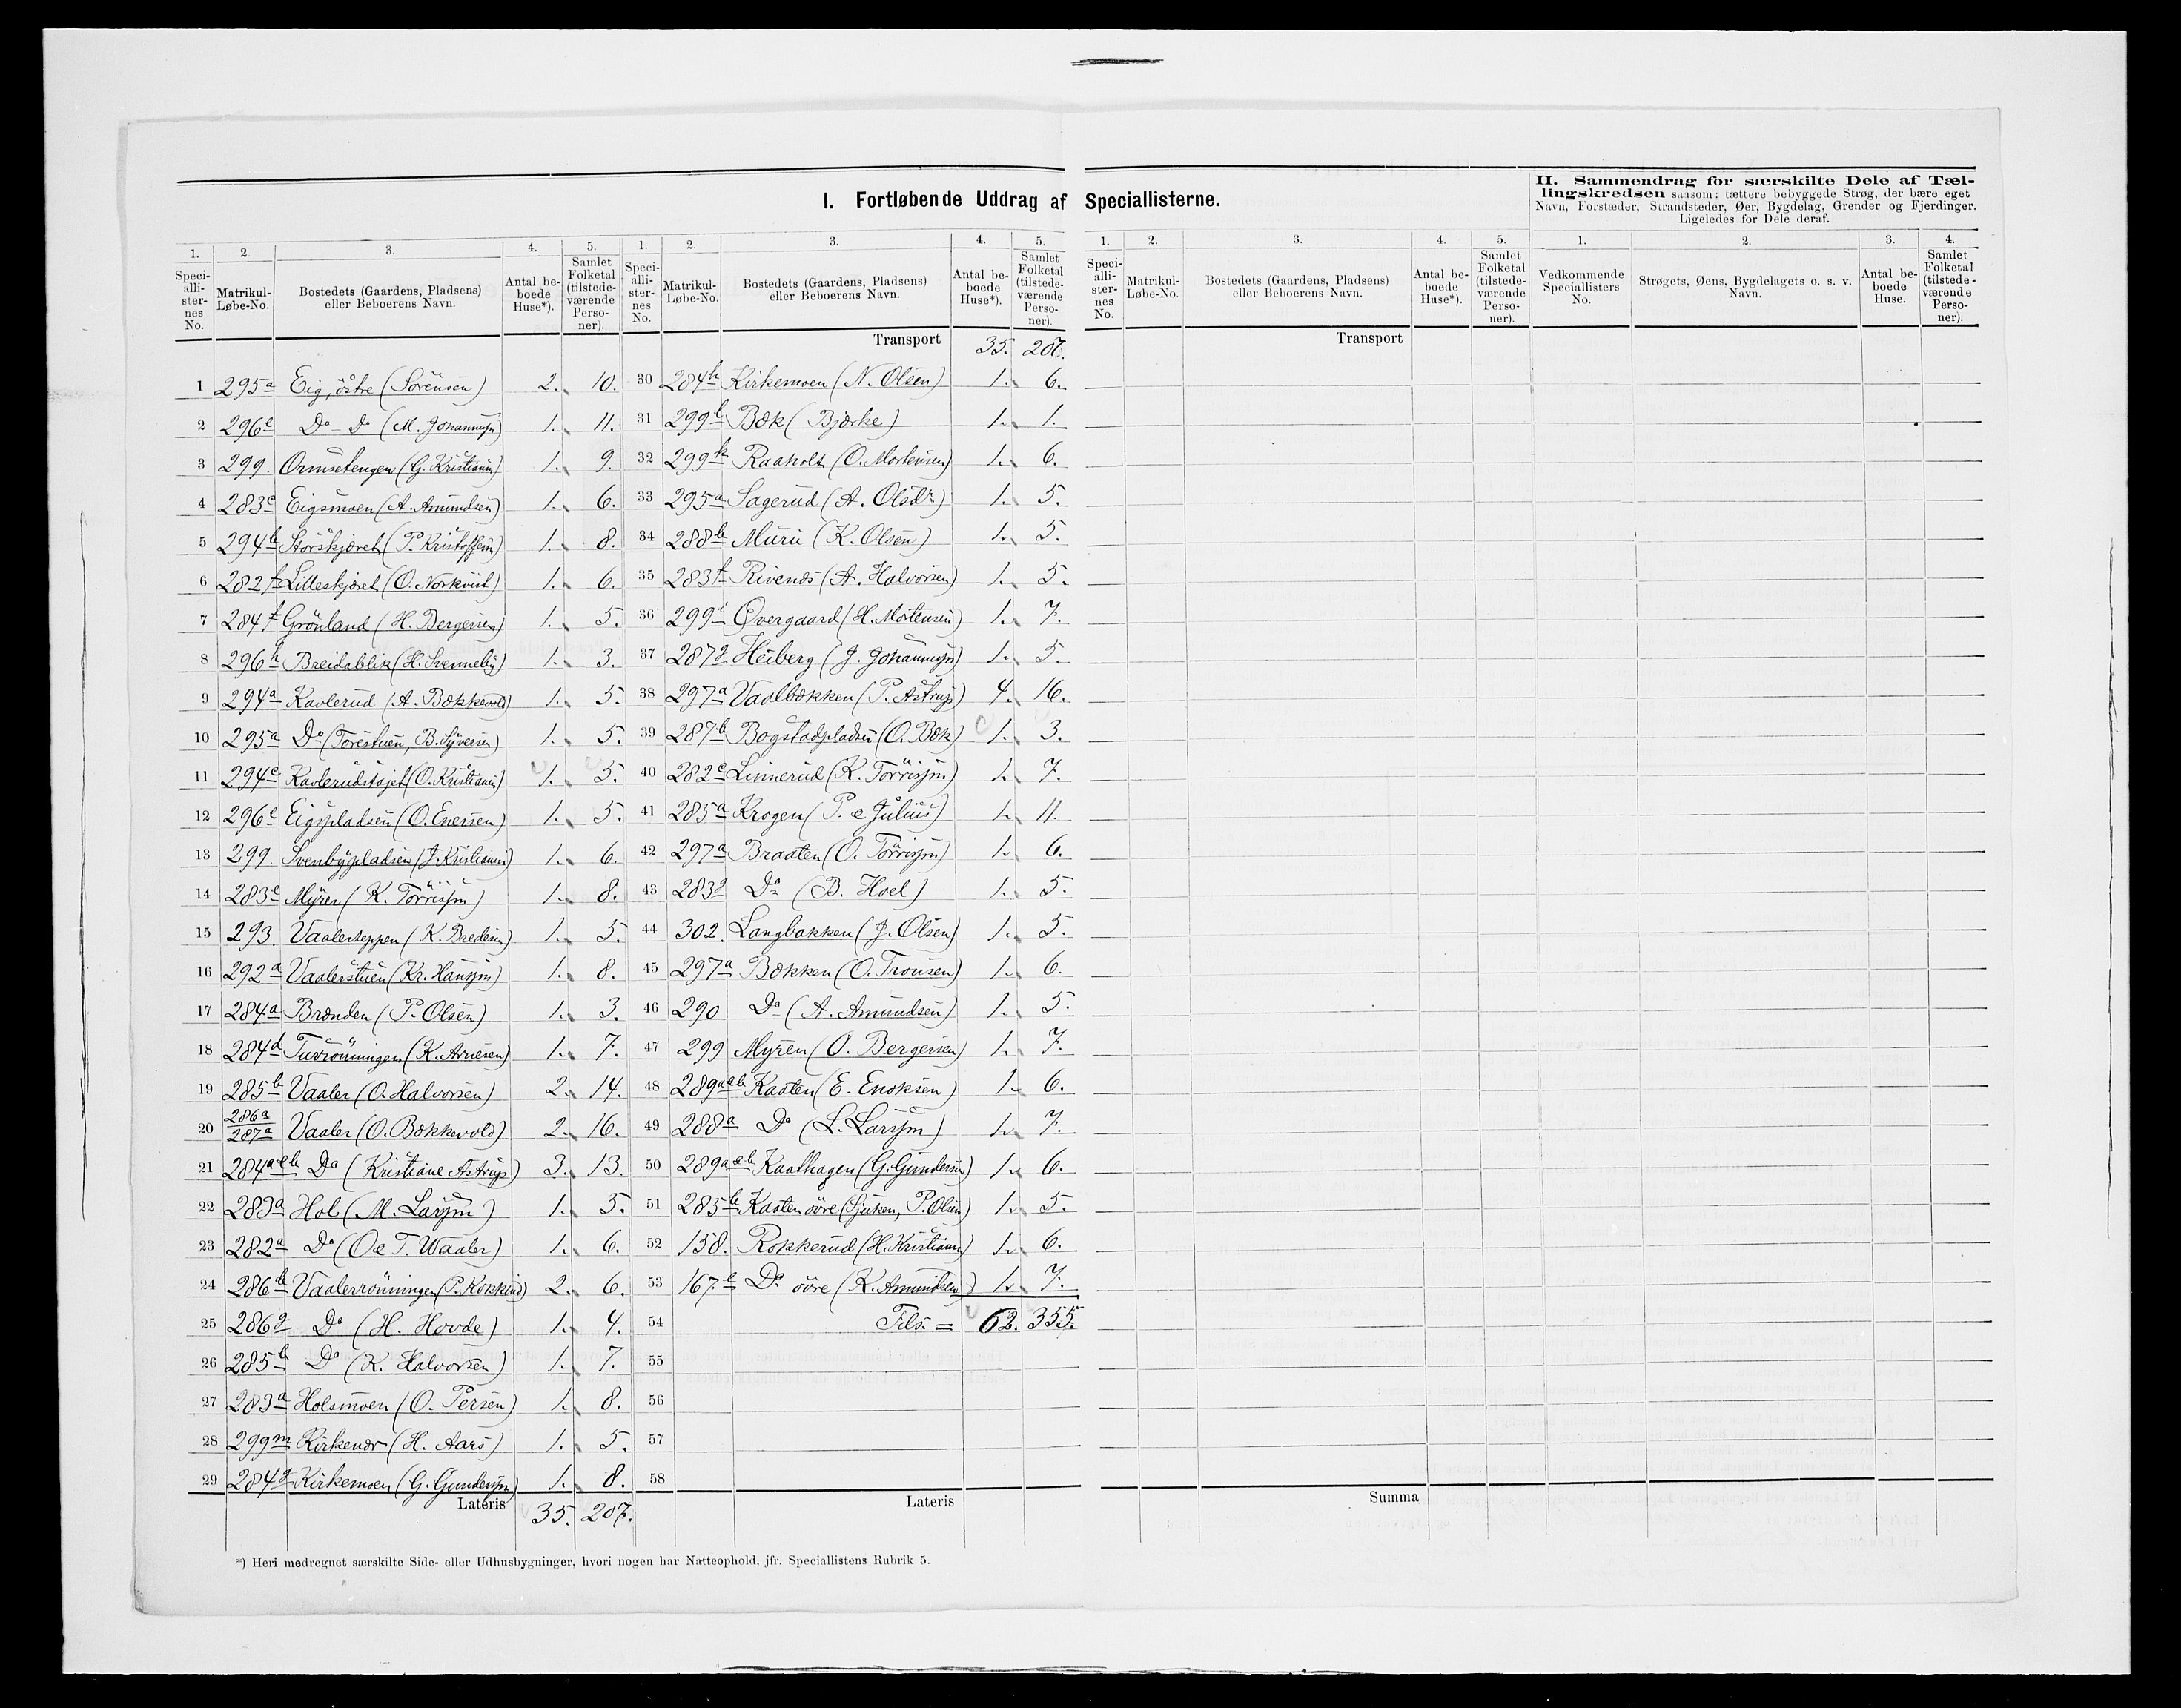 I. Fortløbende Uddrag af Speciallisterne.
II. Sammendrag for særskilte Dele af Tæl-
lingskredsen saasom: tættere bebyggede Strøg, der bære eget
Navn, Forstæder, Strandsteder, Øer, Bygdelag, Grender og Fjerdinger.
Ligeledes for Dele deraf.
1. 2. 3. 4. 5. 1. 2. 3. 4. 5. 1. 2. 3. 4. 5. 1. 2. 3. 4.
Speci-alli-ster-nes No. Matrikul-Løbe-No. Bostedets (Gaardens, Pladsens) eller Beboerens Navn. Antal be-boede Huse*). Samlet Folketal (tilstede-værende Perso-ner).
Speci-alli-ster-nes No. Matrikul-Løbe-No. Bostedets (Gaardens, Pladsens) eller Beboerens Navn. Antal be-boede Huse*). Samlet Folketal (tilstede-værende Perso-ner).
Speci-alli-ster-nes No. Matrikul-Løbe-No. Bostedets (Gaardens, Pladsens) eller Beboerens Navn. Antal be-boede Huse*). Samlet Folketal (tilstede-værende Perso-ner).
Vedkommende Speciallisters No. Strøgets, Øens, Bygdelagets o. s. v. Navn. Antal be-boede Huse. Samlet Folketal (tilstede-værende Perso-ner).
1 295a Eig, östre (Sörensen) 2. 10.
2 296c Do Do (M. Johannesn) 1. 11.
3 299. Ormsetengen (G. Kristiansn) 1. 9.
4 283c Eigsmoen (A. Amundsen) 1. 6.
5 294b Storskjæret (P. Kristoffersn) 1. 8.
6 282f Lilleskjæret (O. Norkvist) 1. 6.
7 284f Grönland (H. Bergersen) 1. 5.
8 296h Breidablik (H. Svenneby) 1. 3.
9 294a Kavlerud (A. Bækkevold) 1. 5.
10 295a Do (Torestuen, B. Syversen) 1. 5.
11 294c Kavlerudstöjet (O. Kristiansn) 1. 5.
12 296c Eigspladsen (O. Enersen) 1. 5.
13 299. Svenbypladsen (J. Kristiansn) 1. 6.
14 283e Myrer (K. Törrissn) 1. 8.
15 293. Vaalerteppen (K. Bredesn) 1. 5.
16 292a Vaalerstuen (Kr. Hanssn) 1. 8.
17 284a Brænden (P. Olsen) 1. 3.
18 284d (K. Arnesen) 1. 7.
19 285b Vaaler (O. Halvorsen) 2. 14.
20 286a 287a Vaaler (O. Bækkevold) 2. 16.
21 284a&b Do (Kristiane Astrup) 3. 13.
22 283a Hol (M. Larssn) 1. 5.
23 282a Do (O & T. Waaler) 1. 6.
24 286b Vaalerrönningen 2. 6.
25 286g Do (H. Hovde) 1. 4.
26 285b Do (K. Halvorsen) 1. 7.
27 283a Holsmoen (O. Persen) 1. 8.
28 299m Kirkenær (H. Aars) 1. 5.
29 284g Kirkemoen (G. Gundersn) 1. 8.
Lateris 35. 207.
Transport 35. 207.
30 284h Kirkemoen (N. Olsen) 1. 6.
31 299l Bæk (Bjærke) 1. 1.
32 299k Raaholt (O. Mortensen) 1. 6.
33 295a Sagerud (A. Olsdr.) 1. 5.
34 288b Muru (K. Olsen) 1. 5.
35 283f Rivenæs (A. Halvorsen) 1. 5.
36 299i Övergaard (H. Mortensen) 1. 7.
37 287g Heiberg (J. Johannesn) 1. 5.
38 297a Vaalbækken (P. Astrup) 4. 16.
39 287b Bogstadpladsen (O. Bæk) 1. 3.
40 282c Linnerud (K. Törrissn) 1. 7.
41 285a Krogen (P. & Julius) 1. 11.
42 297a Braaten (O. Törrissn) 1. 6.
43 283g Do (B. Hoel) 1. 5.
44 302. Langbakken (J. Olsen) 1. 5.
45 297a Bækken (O. Tronsen) 1. 6.
46 290 Do (A. Amundsen) 1. 5.
47 299 Myren (O. Bergersen) 1. 7.
48 289a&b Kaaten (E. Enoksen) 1. 6.
49 288a Do (L. Larssn) 1. 7.
50 289a&b Kaathagen (G. Gundersn) 1. 6.
51 285b Kaaten övre (Sjuken, P. Olsen) 1. 5.
52 158. Rokkerud (H. Kristiansn) 1. 6.
53 167e Do övre (K. Amundsen) 1. 7.
54 Tils. = 62. 355.
55
56
57
58
Lateris
Transport
Summa
*) Heri medregnet særskilte Side- eller Udhusbygninger, hvori nogen har Natteophold, jfr. Speciallistens Rubrik 5.